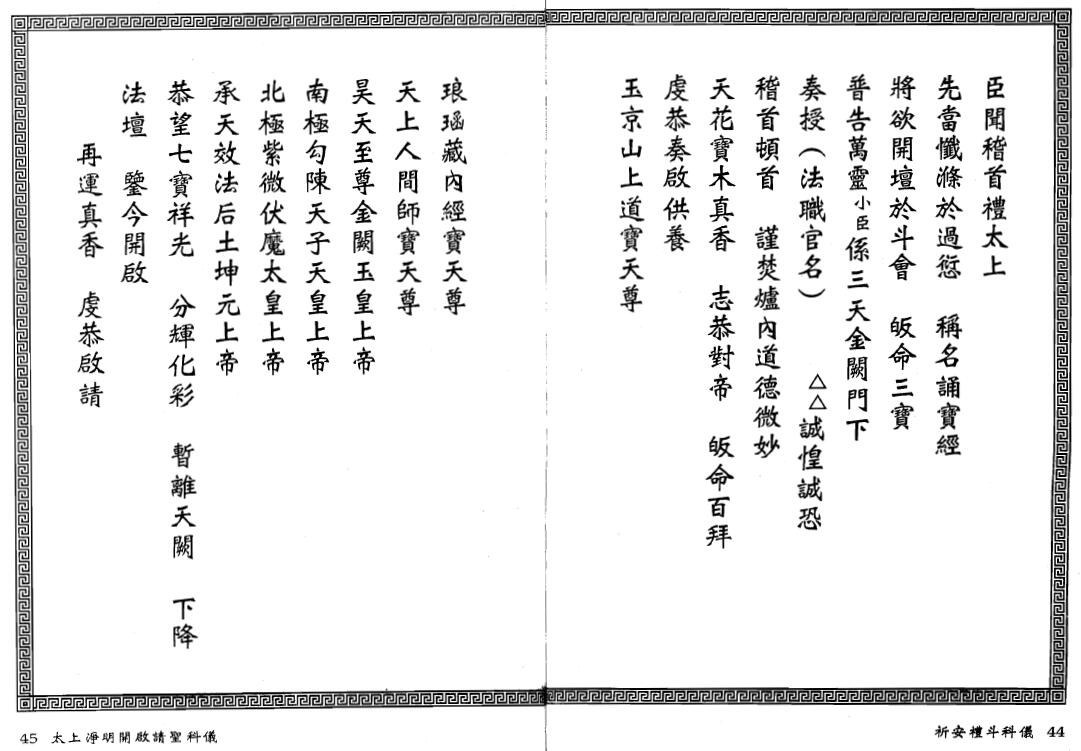 臣聞稽首禮太上
先當懺滌於過愆　稱名誦寶經
將欲開壇於斗會　皈命三寶
普告萬靈小臣係三天金闕門下
奏授（法職官名）　△△誠惶誠恐
稽首頓首　謹焚爐內道德微妙
天花寶木真香　志恭對帝　皈命百拜
虔恭奏啟供養
玉京山上道寶天尊
祈安禮斗科儀 44
琅瑤藏內經寶天尊
天上人間師寶天尊
昊天至尊金闕玉皇上帝
南極勾陳天子天皇上帝
北極紫微伏魔太皇上帝
承天效法后土坤元上帝
恭望七寶祥光　分輝化彩　暫離天闕　下降
法壇　鑒今開啟
再運真香　虔恭啟請
45 太上淨明開啟請聖科儀